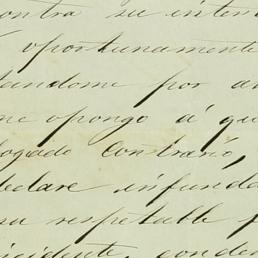 ontra su inter
oportunamente
tandome por a
me opongo á qu
logado contrario,
eclare infunda
su respetable f
incidente, conden